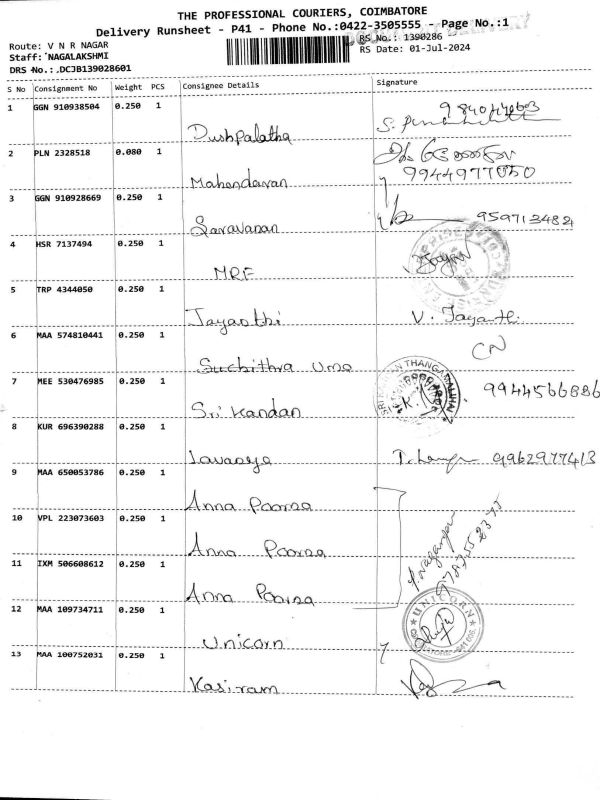 THE PROFESSIONAL COURIERS, COIMBATORE
Delivery Runsheet - P41 - Phone No.:0422-3505555 - Page No.:1
Route: V N R NAGAR
RS No.: 1390286
Staff: NAGALAKSHMI
RS Date: 01-Jul-2024
DRS No.: DCJB139028601
S No Consignment No Weight PCS Consignee Details Signature
1 GGN 910938504 0.250 1
Dushpalatha
2 PLN 2328518 0.080 1
Mahendaran 9944977050
3 GGN 910928669 0.250 1
Saravanan
4 HSR 7137494 0.250 1
MRF
5 TRP 4344050 0.250 1
Jayanthi V. Jayanthi
6 MAA 574810441 0.250 1
Suchithra Uma CN
7 MEE 530476985 0.250 1
Sri Kandan 9944566886
8 KUR 696390288 0.250 1
Lavanya 9962977413
9 MAA 650053786 0.250 1
Anna Poorna
10 VPL 223073603 0.250 1
Anna Poorna
11 IXM 506608612 0.250 1
Anna Poorna
12 MAA 109734711 0.250 1
Unicorn
UNICORN
13 MAA 100752031 0.250 1
Kasiram